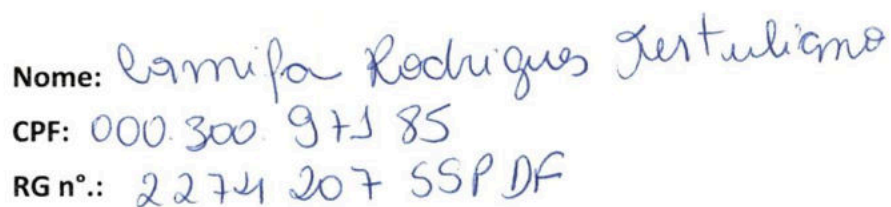 Nome: Camila Rodrigues Tertuliano
CPF: 000.300.971 85
RG n°.: 2274 207 SSP DF